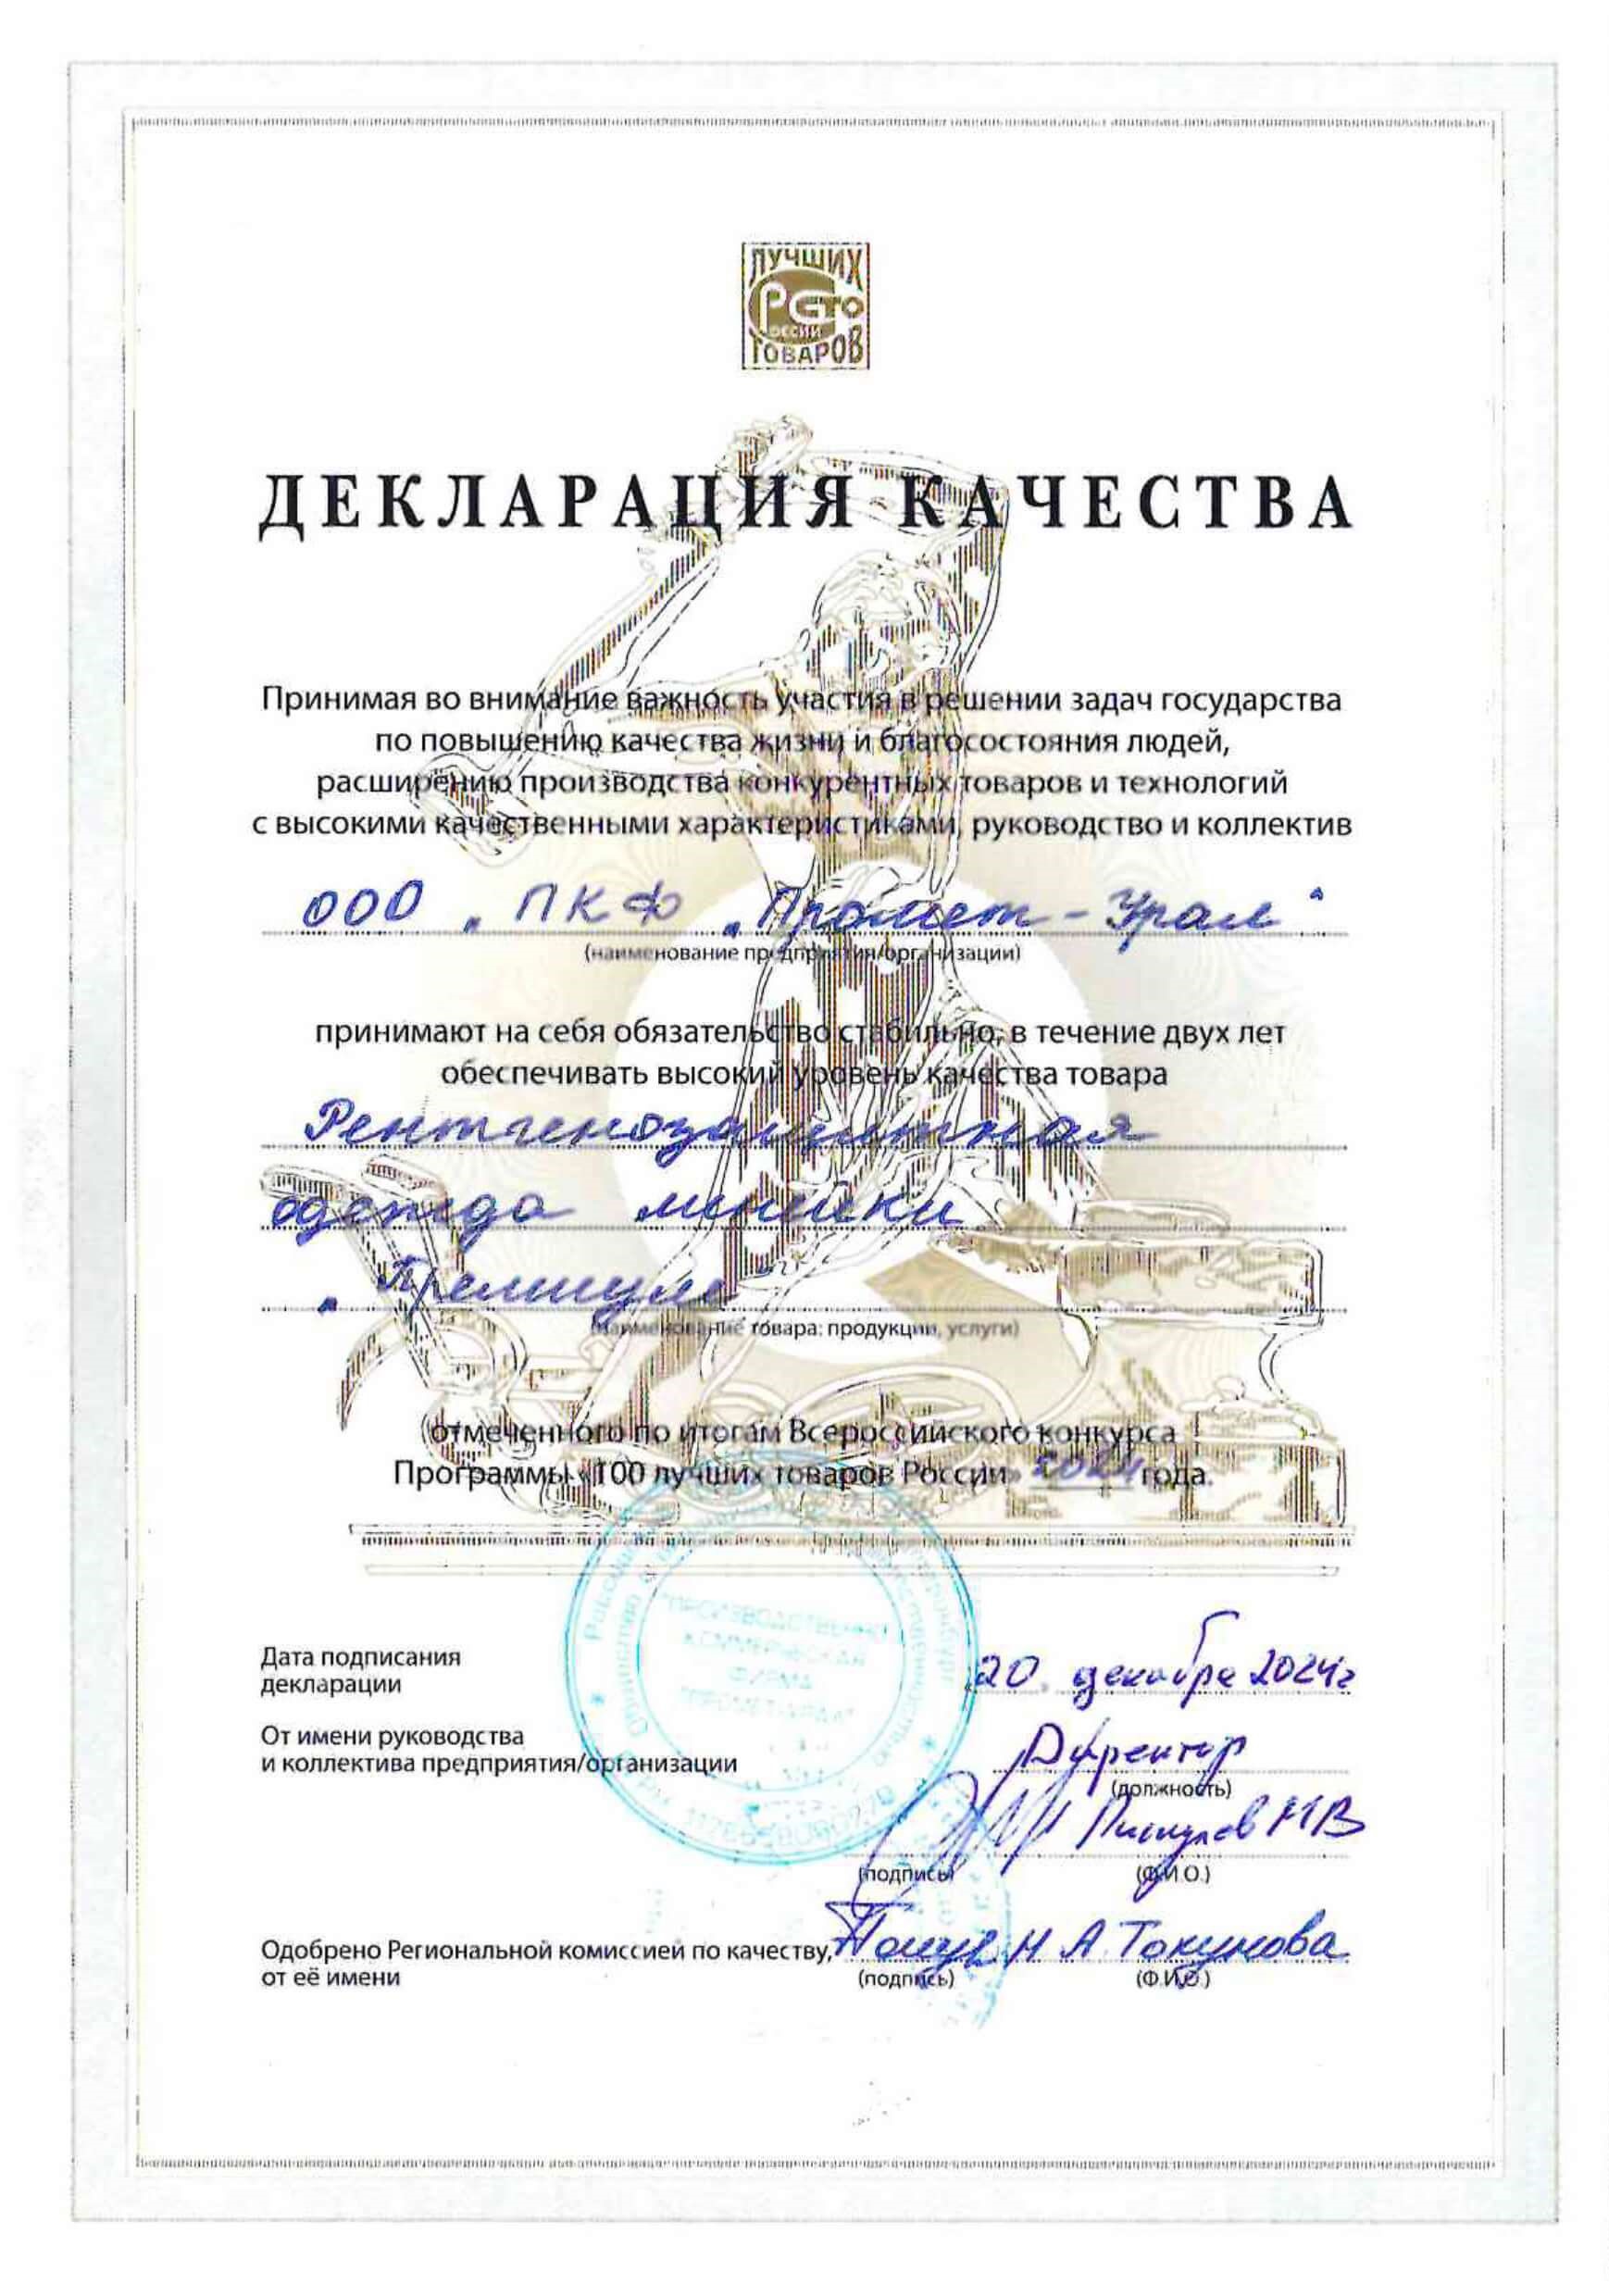 ЛУЧШИХ
РСТ
РОССИИ
ТОВАРОВ
ДЕКЛАРАЦИЯ КАЧЕСТВА
Принимая во внимание важность участия в решении задач государства
по повышению качества жизни и благосостояния людей,
расширению производства конкурентных товаров и технологий
с высокими качественными характеристиками, руководство и коллектив
ООО „ПКФ „Промет-Урал“
(наименование предприятия/организации)
принимают на себя обязательство стабильно, в течение двух лет
обеспечивать высокий уровень качества товара
Рентгенозащитная
одежда линейки
„Премиум“
(наименование товара: продукции, услуги)
отмеченного по итогам Всероссийского конкурса
Программы «100 лучших товаров России» 2024 года.
"ПРОИЗВОДСТВЕННО
КОММЕРЧЕСКАЯ
ФИРМА
"ПРОМЕТ-УРАЛ"
Дата подписания
декларации
20. декабря 2024г
От имени руководства
и коллектива предприятия/организации
Директор
(должность)
МВ
(подпись) (Ф.И.О.)
Одобрено Региональной комиссией по качеству,
от её имени
Н А Токунова
(подпись) (Ф.И.О.)